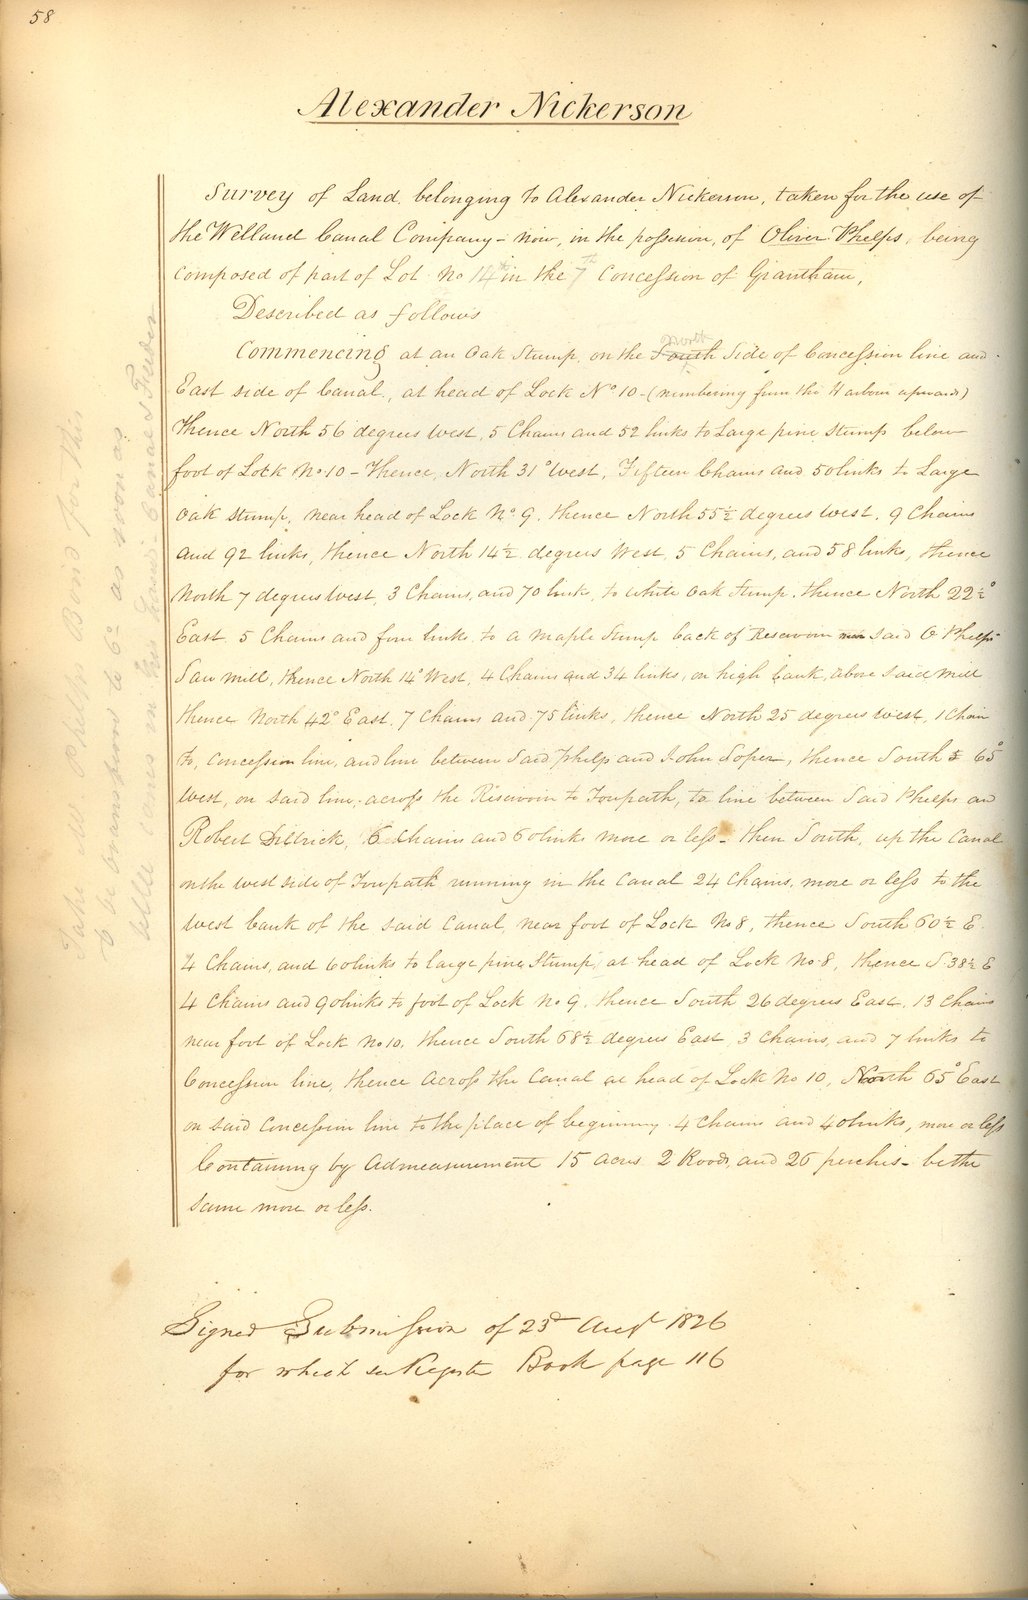 58
Alexander Nickerson
Survey of Land belonging to Alexander Nickerson, taken for the use of
the Welland Canal Company – now, in the possession, of Oliver Phelps, being
composed of part of Lot No 14th in the 7th Concession of Grantham,
Described as follows
Commencing at an Oak Stump, on the South north Side of Concession line and
East side of Canal, at head of Lock No 10 – (numbering from the Harbour upwards)
Thence North 56 degrees West, 5 Chains and 52 links to Large pine stump below
foot of Lock No 10 – Thence, North 31° West, Fifteen Chains and 50 links to Large
Oak stump, near head of Lock No 9, thence North 55½ degrees West, 9 Chains
and 92 links, thence North 14½ degrees West, 5 Chains, and 58 links, thence
North 7 degrees West, 3 Chains, and 70 links, to White Oak Stump, thence North 22½°
East, 5 Chains and four links to a maple Stump back of Reservoir said O Phelps
Saw mill, thence North 14° West, 4 Chains and 34 links, on high bank, above said mill
thence North 42° East, 7 Chains and 75 links, thence North 25 degrees West, 1 Chain
to, Concession line, and line between Said Phelps and John Soper, thence South 65°
West, on said line, across the Reservoir to Towpath, to line between Said Phelps and
Robert Dittrick, 6 Chains and 60 links more or less – then South, up the Canal
on the West side of Towpath running in the Canal 24 Chains, more or less to the
West bank of the said Canal, near foot of Lock No 8, thence South 60½ E.
4 Chains, and 60 links to large pine Stump, at head of Lock No 8, thence S. 38½ E
4 Chains and 90 links to foot of Lock No 9, thence South 26 degrees East, 13 Chains
near foot of Lock No 10, thence South 68½ degrees East, 3 Chains, and 7 links to
Concession line, thence across the Canal at head of Lock No 10, North 65° East
on said Concession line to the place of beginning 4 Chains and 40 links, more or less
Containing by Admeasurement 15 acres 2 Roods and 26 perches – be the
same more or less.
Signed Submission of 23d Augt 1826
for which see Register Book page 116
Take O. Phelps Bond for this
to be transferred to Co as soon as